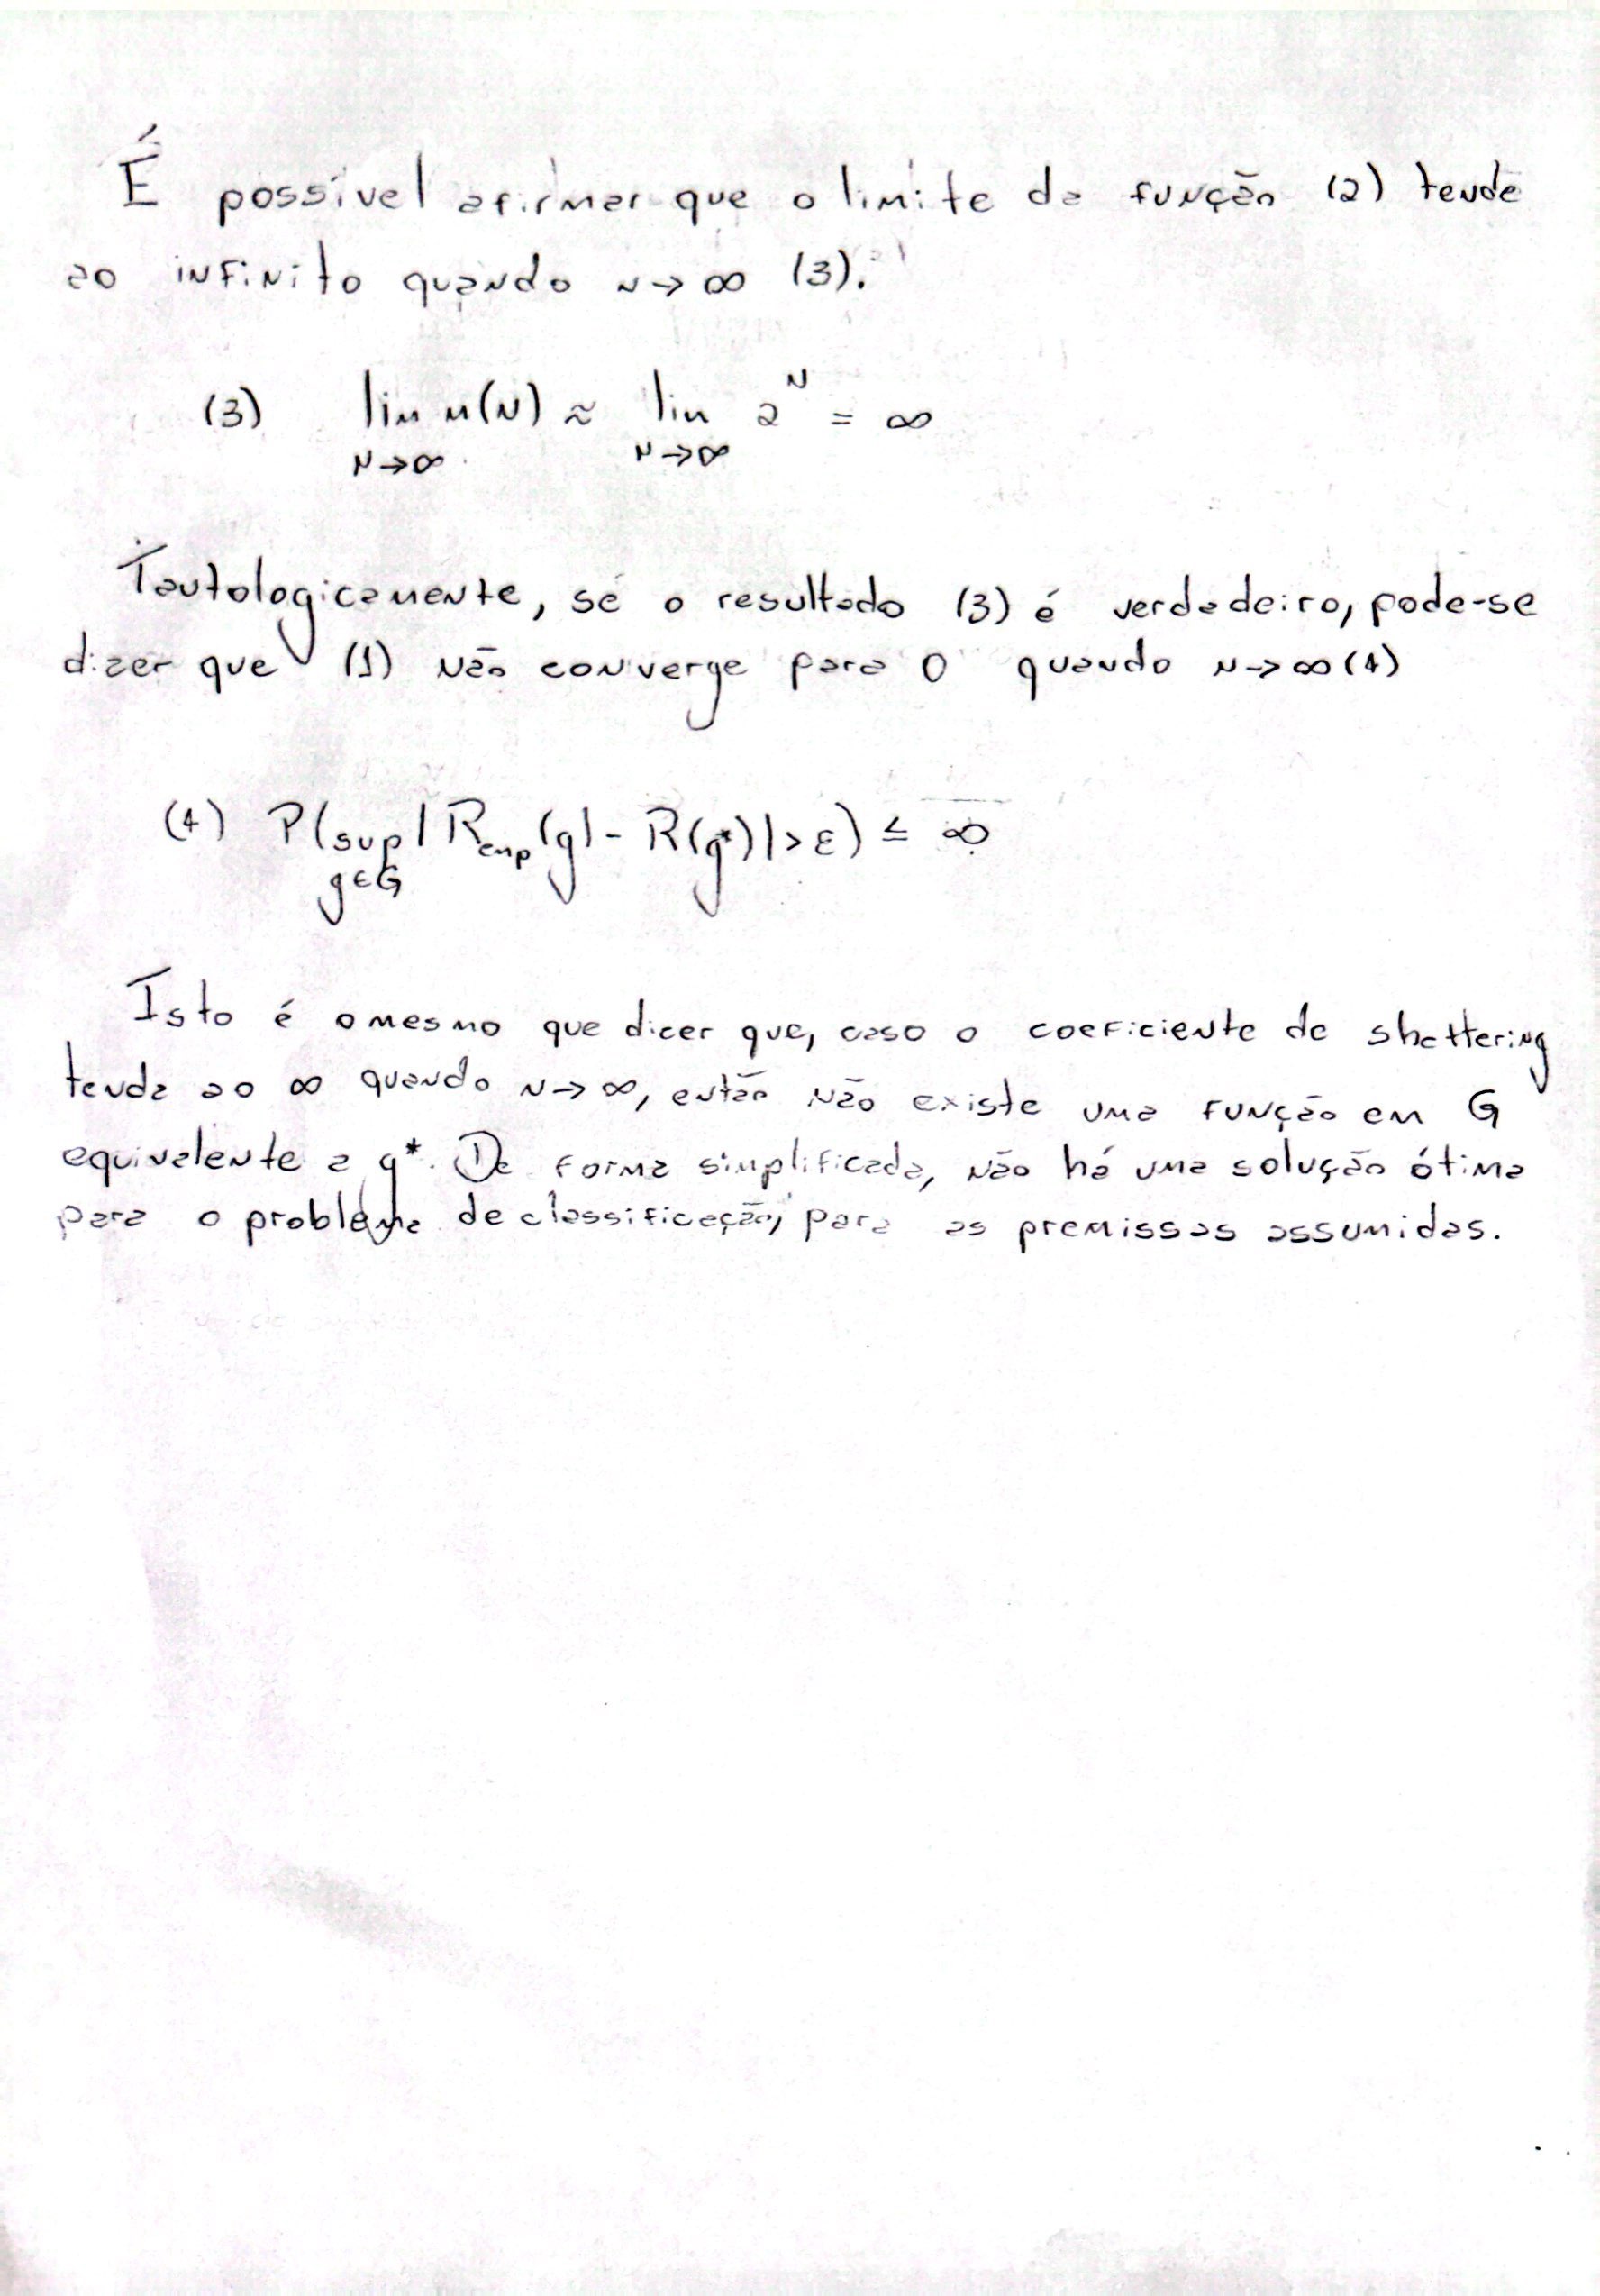 É possível afirmar que o limite da função (2) tende
ao infinito quando n→∞ (3).
(3) lim n(N) ≈ lim 2^N = ∞
N→∞ N→∞
Tautologicamente, se o resultado (3) é verdadeiro, pode-se
dizer que (1) não converge para 0 quando n→∞ (4)
(4) P(sup|R_emp(g)-R(g*)|>ε) ≤ ∞
g∈G
Isto é o mesmo que dizer que, caso o coeficiente de shattering
tenda ao ∞ quando n→∞, então não existe uma função em G
equivalente a g*. De forma simplificada, não há uma solução ótima
para o problema de classificação, para as premissas assumidas.